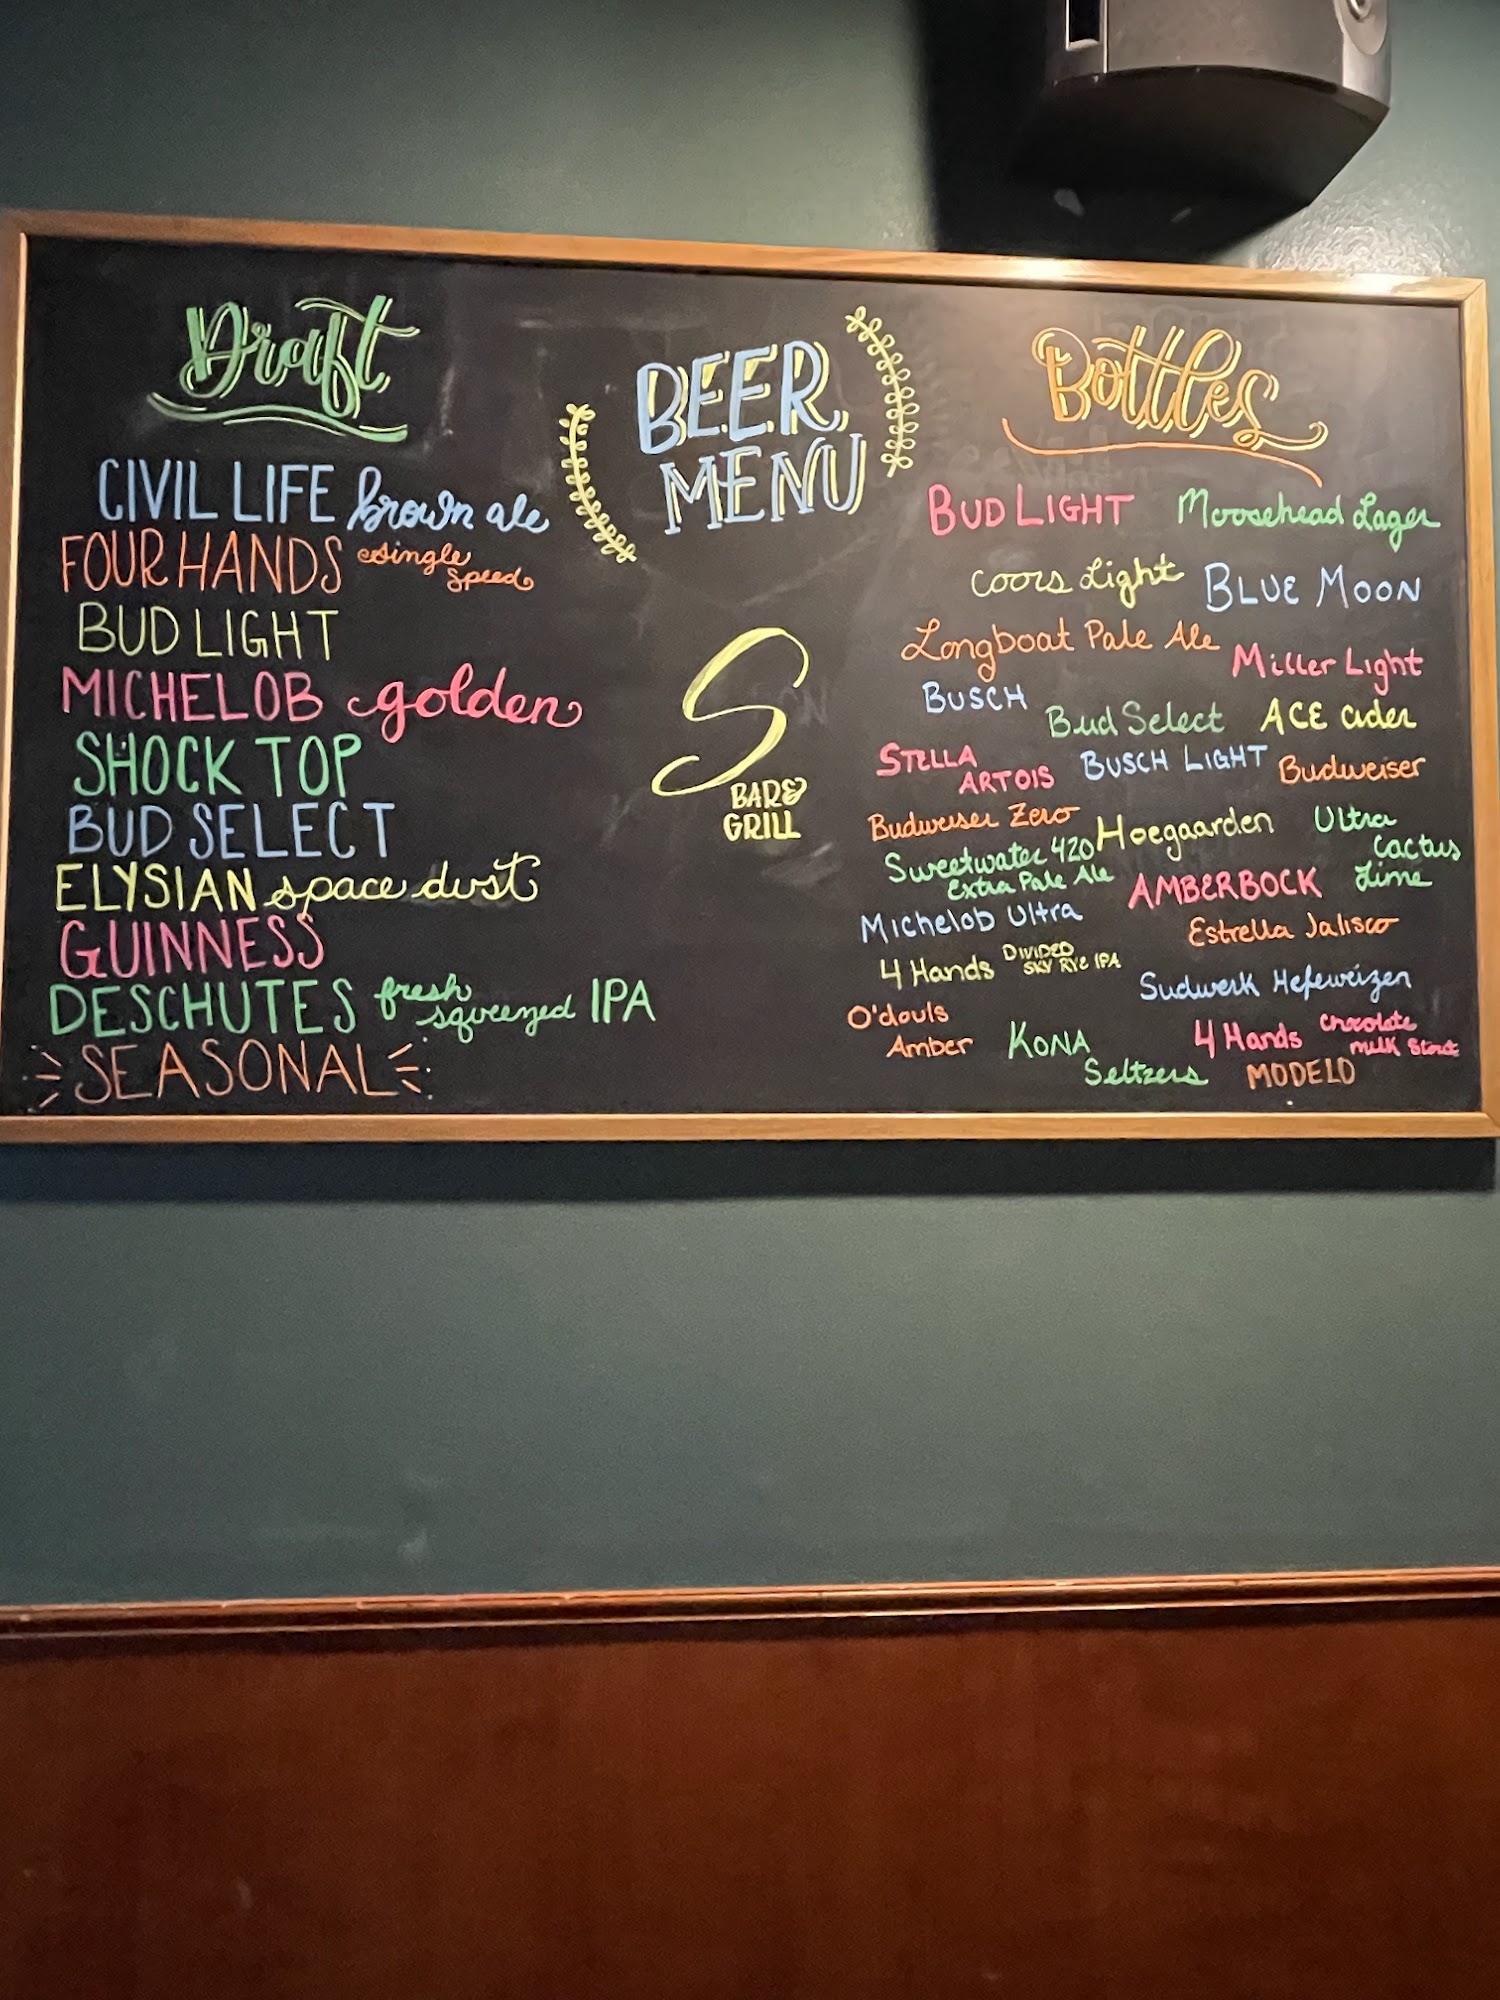 Draft
CIVIL LIFE brown ale
FOUR HANDS single
speed
BUD LIGHT
MICHELOB golden
SHOCK TOP
BUD SELECT
ELYSIAN space dust
GUINNESS
DESCHUTES fresh
squeezed IPA
SEASONAL
BEER
MENU
S
BAR &
GRILL
Bottles
BUD LIGHT
Moosehead Lager
Coors Light
BLUE MOON
Longboat Pale Ale
Miller Light
BUSCH
Bud Select
ACE cider
STELLA
ARTOIS
BUSCH LIGHT
Budweiser
Budweiser Zero
Hoegaarden
Ultra
Cactus
Lime
Sweetwater 420
Extra Pale Ale
AMBERBOCK
Michelob Ultra
Estrella Jalisco
4 Hands DIVIDED
SKY RYE IPA
Sudwerk Hefeweizen
O'douls
Amber
KONA
Seltzers
4 Hands Chocolate
milk Stout
MODELO